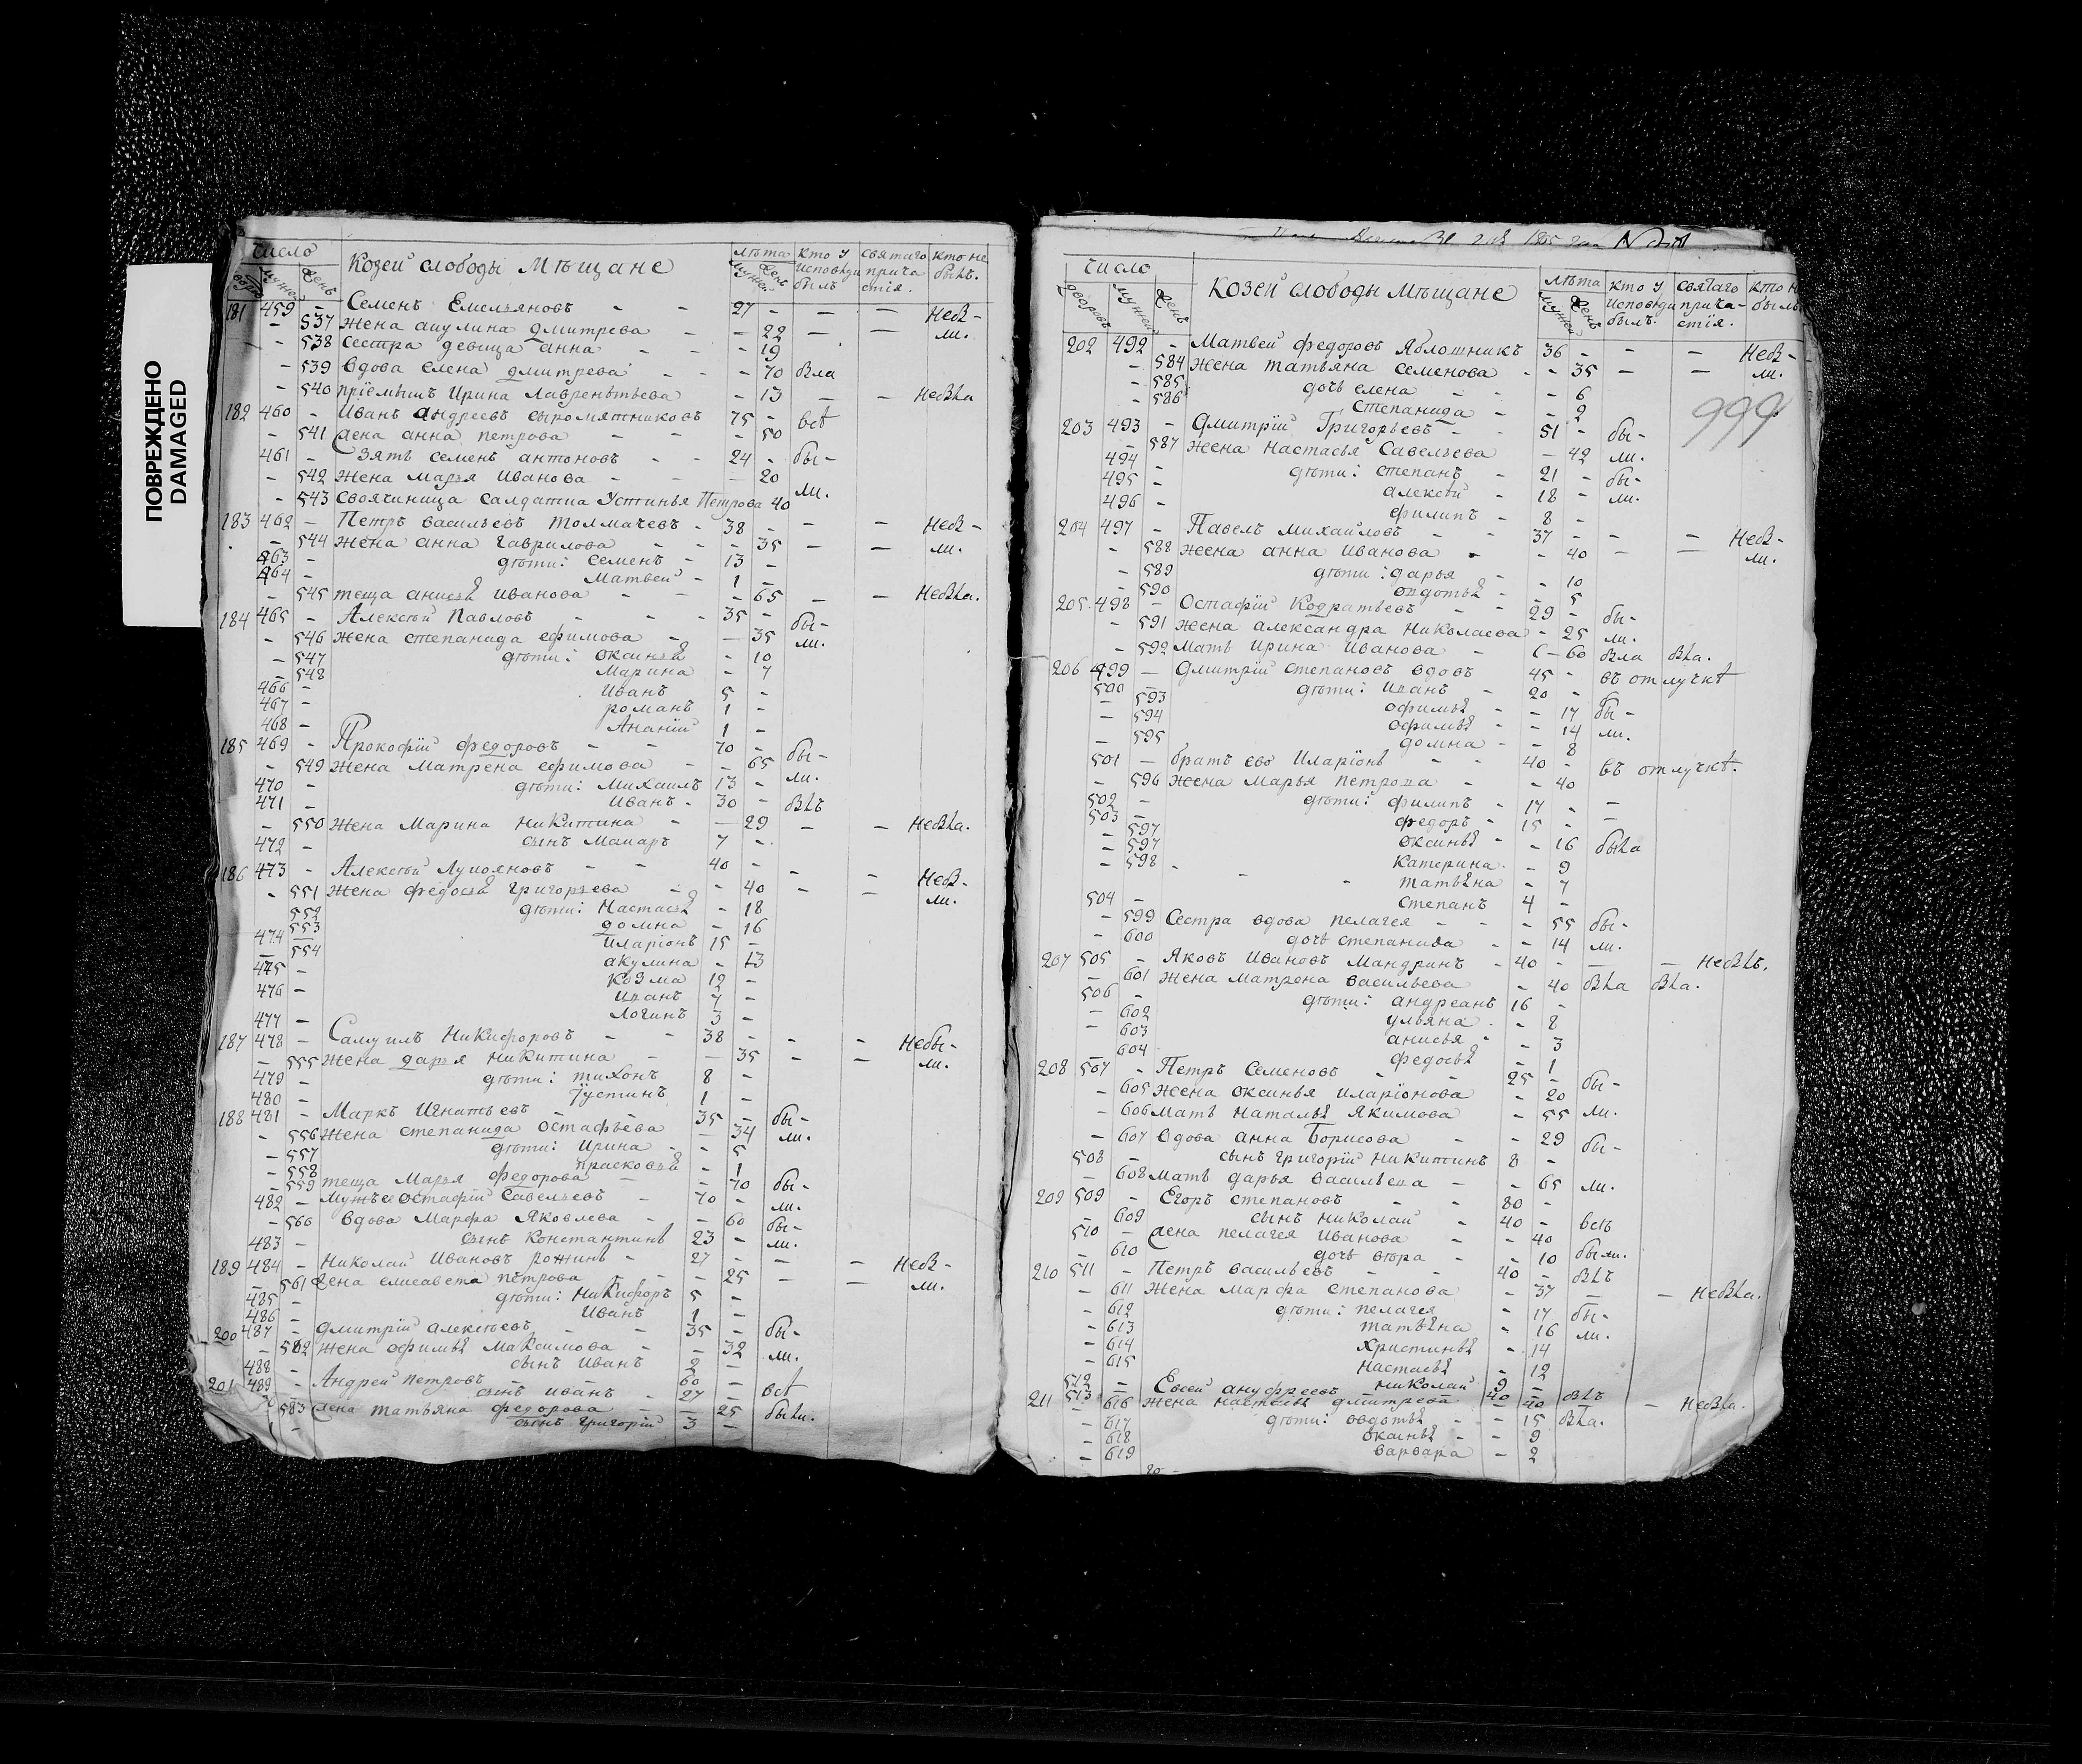 ПОВРЕЖДЕНО
DAMAGED
число Козей слободы Мѣщане лѣта кто у исповѣди былъ святаго прича стія. кто не былъ.
мужей женъ мужей женъ
181 459 - Семенъ Емельяновъ - - 27 - — — Небы-
- 537 жена акулина дмитрева - - 22 — — ли.
- 538 сестра девица анна - - - 19
- 539 вдова елена дмитрева - - - 70 была
- 540 пріемышъ Ирина Лаврентьева - - 13 — - Небыла
182 460 - Иванъ андреевъ сыромятниковъ 75 - всѣ
- 541 жена анна петрова - - - 50
461 - зять семенъ антоновъ - - 24 - бы-
- 542 жена марья иванова - - - 20
- 543 своячиница салдатка Устинья Петрова 40 ли.
183 462 - Петръ васильевъ толмачевъ - 38 - - — Небы-
- 544 жена анна гаврилова - - - 35 — — ли.
463 - дѣти: семенъ - 13 -
464 - Матвей - 1 -
- 545 теща анисья иванова - - - 65 - - Небыла.
184 465 - Алексѣй Павловъ - - 35 - бы-
- 546 жена степанида ефимова - — 35 ли.
- 547 дѣти: оксинья - 10
- 548 Марина - 7
466 - Иванъ 5 -
467 - романъ 1 -
468 - Ананій 1 -
185 469 - Прокофій федоровъ - - 70 - бы-
- 549 жена Матрена ефимова - - 65
470 - дѣти: Михаилъ 13 - ли.
471 - Иванъ - 30 - былъ
- 550 жена Марина никитина - — 29 - - Небыла.
472 - сынъ Макаръ 7 -
186 473 - Алексѣй Лукояновъ - - 40 - - - Небы-
- 551 жена федосья григорьева - - 40 - - ли.
552 дѣти: настасья - 18
553 домна - 16
474 - иларіонъ 15 -
554 акулина - 13
475 - козма 12 -
476 - иванъ 7 -
477 - логинъ 3 -
187 478 - Самуилъ Никифоровъ - - 38 - - - Небы-
- 555 жена дарья никитина - — 35 - - ли.
479 - дѣти: тихонъ 8 -
480 - Іустинъ 1 -
188 481 - Маркъ Игнатьевъ - - 35 - бы-
- 556 жена степанида остафьева — 34 ли.
- 557 дѣти: ирина - - 5
- 558 прасковья - 1
- 559 теща Марья федорова - - 70 бы-
482 - мужъ ее остафій савельевъ - 70 - ли.
- 560 вдова Марфа Яковлева - - 60 бы-
483 - сынъ константинъ 23 - ли.
189 484 - Николай Ивановъ рожинъ - 27 - — - Небы-
- 561 жена елисавета петрова - - 25 — — ли.
485 - дѣти: никифоръ 5 -
486 - Иванъ 1 -
200 487 - дмитрій алексѣевъ - - 35 - бы-
- 582 жена офимья максимова - - 32
488 - сынъ иванъ 2 - ли.
201 489 - Андрей петровъ - - 60 -
сынъ иванъ - 27 - всѣ
583 жена татьяна федорова - - 25 были.
сынъ григорій 3 -
число Козей слободы Мѣщане лѣта кто у исповѣди былъ. святаго прича- стія.
дворовъ мужей женъ мужей женъ
202 492 - Матвей федоровъ Яблошникъ 36 - - — Небы-
- 584 жена татьяна семенова - - 35 — — ли.
- 585 дочь елена - - - 6
- 586 степанида - - 2
999
203 493 - Дмитрій Григорьевъ - - 51 - бы-
- 587 жена Настасья Савельева — 42 ли.
494 - дѣти: степанъ - 21 - бы-
495 - алексѣй - 18 - ли.
496 - филипъ - 8 -
204 497 - Павелъ михайловъ - - 37 - - — Небы-
- 588 жена анна иванова - - 40 — — ли.
- 589 дѣти: дарья - - 10
- 590 овдотья - - 5
205 498 - Остафій Кодратьевъ - - 29 - бы-
- 591 жена александра николаева - 25 ли.
- 592 Мать ирина иванова - - 60 была была.
206 499 — дмитрій степановъ вдовъ 45 - въ отлучкѣ
500 - дѣти: иванъ - 20 -
- 593 офимья - - 17 бы-
- 594 офимья - - 14 ли.
- 595 домна - - 8
501 — братъ его иларіонъ - - 40 - въ отлучкѣ.
- 596 жена марья петрова - - 40
502 - дѣти: филипъ - 17 - —
503 - федоръ - 15 - —
- 597 оксинья - - 16 была
- 597 катерина - - 9
- 598 - татьяна - 7
504 - степанъ 4 -
- 599 Сестра вдова пелагея - - - 55 бы-
- 600 дочь степанида - - 14 ли.
207 505 - Яковъ ивановъ мандринъ - 40 - — — Небылъ.
- 601 жена матрена васильева - 40 была была.
506 - дѣти: андреанъ 16 -
- 602 ульяна - - 8
- 603 анисья - - 3
- 604 федосья - 1
208 507 - Петръ Семеновъ - - 25 - бы-
- 605 жена оксинья иларіонова - 20
- 606 мать наталья якимова - 55 ли.
- 607 вдова анна борисова - - 29 бы-
508 - сынъ григорій никитинъ 8 -
- 608 мать дарья васильева - - 65 ли.
209 509 - Егоръ степановъ - - 80 -
- 609 сынъ николай - 40 - всѣ
510 - жена пелагея иванова - 40
- 610 дочь вѣра - - 10 были.
210 511 - Петръ васильевъ - - 40 - былъ
- 611 жена марфа степанова - 37 — - Небыла.
- 612 дѣти: пелагея - 17 бы-
- 613 татьяна - 16 ли.
- 614 христинья - 14
- 615 настасья - 12
512 - николай 9 -
211 513 - Евсей ануфреевъ 40 - былъ
- 616 жена настасья дмитрева - 40 - Небыла.
- 617 дѣти: овдотья - - 15 была.
- 618 оксинья - - 9
- 619 варвара - 2